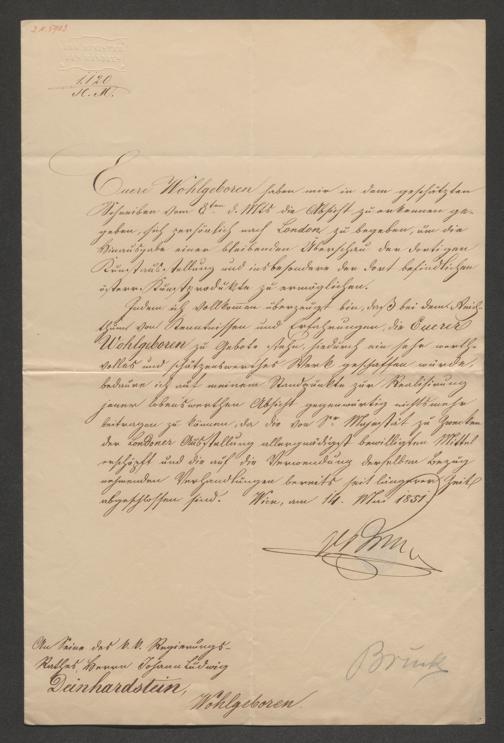 1120
H. M.
Euere Wohlgeboren haben mir in dem geschätzten
Schreiben vom 8ten d. Mts die Absicht zu erkennen ge-
geben, sich persönlich nach London zu begeben, um die
Hinausgabe einer bleibenden Überschau der dortigen
Kunstausstellung und insbesondere der dort befindlichen
österr. Kunstprodukte zu ermöglichen.
Indem ich vollkommen überzeugt bin, daß bei dem Reich-
thum von Kenntnissen und Erfahrungen, die Euerer
Wohlgeboren zu Gebote stehn, hiedurch ein sehr werth-
volles und schätzenswerthes Werk geschaffen würde,
bedaure ich auf meinem Standpunkte zur Realisirung
jener lobenswerthen Absicht gegenwärtig nichts mehr
beitragen zu können, da die von Sr Majestät zu Zwecken
der Londoner Ausstellung allergnädigst bewilligten Mittel
erschöpft und die auf die Verwendung derselben Bezug
nehmenden Verhandlungen bereits seit längerer Zeit
abgeschlossen sind. Wien, am 14. Mai 1851.
An Seine des k. k. Regierungs-
Rathes Herrn Johann Ludwig
Deinhardstein,
Wohlgeboren.
Bruck